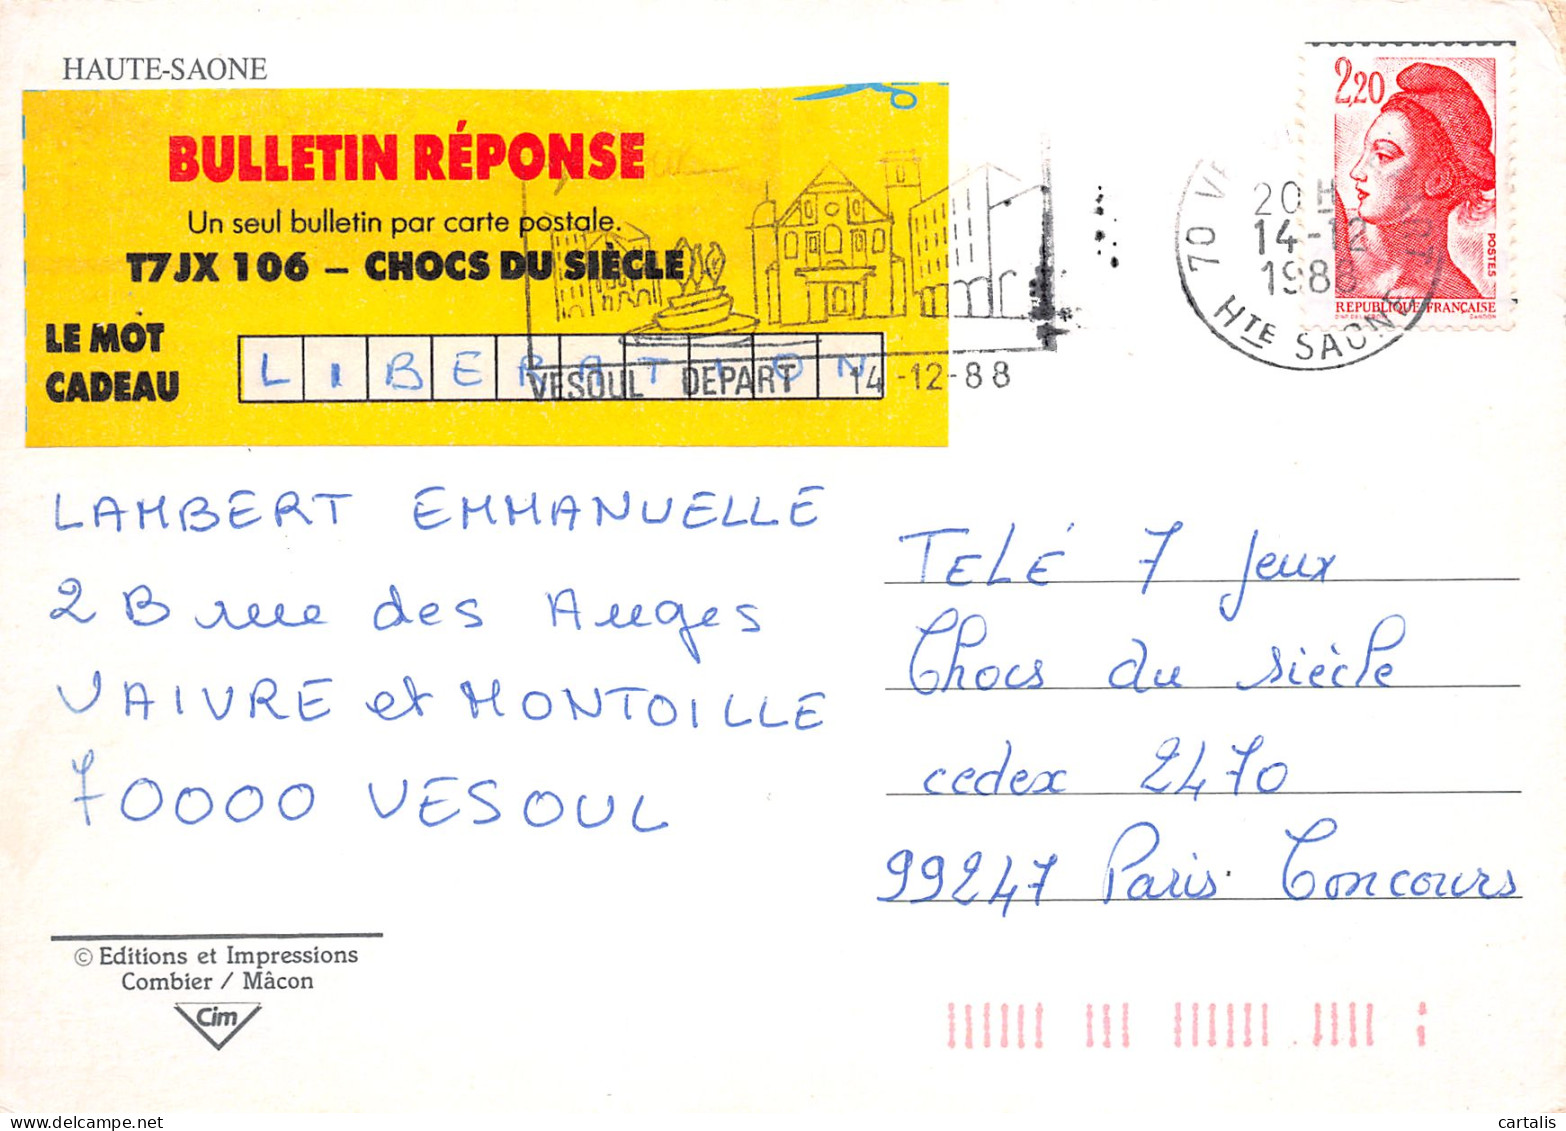 HAUTE-SAONE
BULLETIN RÉPONSE
Un seul bulletin par carte postale.
T7JX 106 – CHOCS DU SIÈCLE
LE MOT
CADEAU
LIBERATION
VESOUL DEPART 14-12-88
2,20
POSTES
REPUBLIQUE FRANÇAISE
GANDON
70
20H
14-12
198
HTE SAONE
LAMBERT EMMANUELLE
2 B rue des Auges
VAIVRE et MONTOILLE
70000 VESOUL
TELÉ 7 Jeux
Chocs du siècle
cedex 2470
99247 Paris Concours
© Editions et Impressions
Combier / Mâcon
Cim
cartalis